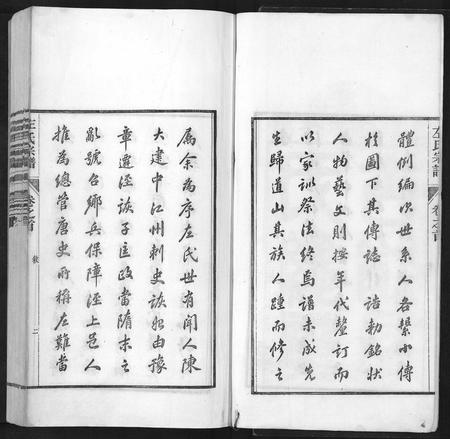 體例編次世系人各繫小傳
於圖下其傳誌誥勅銘狀
人物藝文則按年代釐訂而
以家訓祭法終焉譜未成先
生歸道山其族人踵而修之
左氏宗譜
卷之首
屬余為序左氏世有聞人陳
大建中江州刺史詼始由豫
章遷涇詼子匡政當隋末之
亂號召鄉兵保障涇上邑人
推為總管唐史所稱左難當
左氏宗譜
卷之首
敘
二